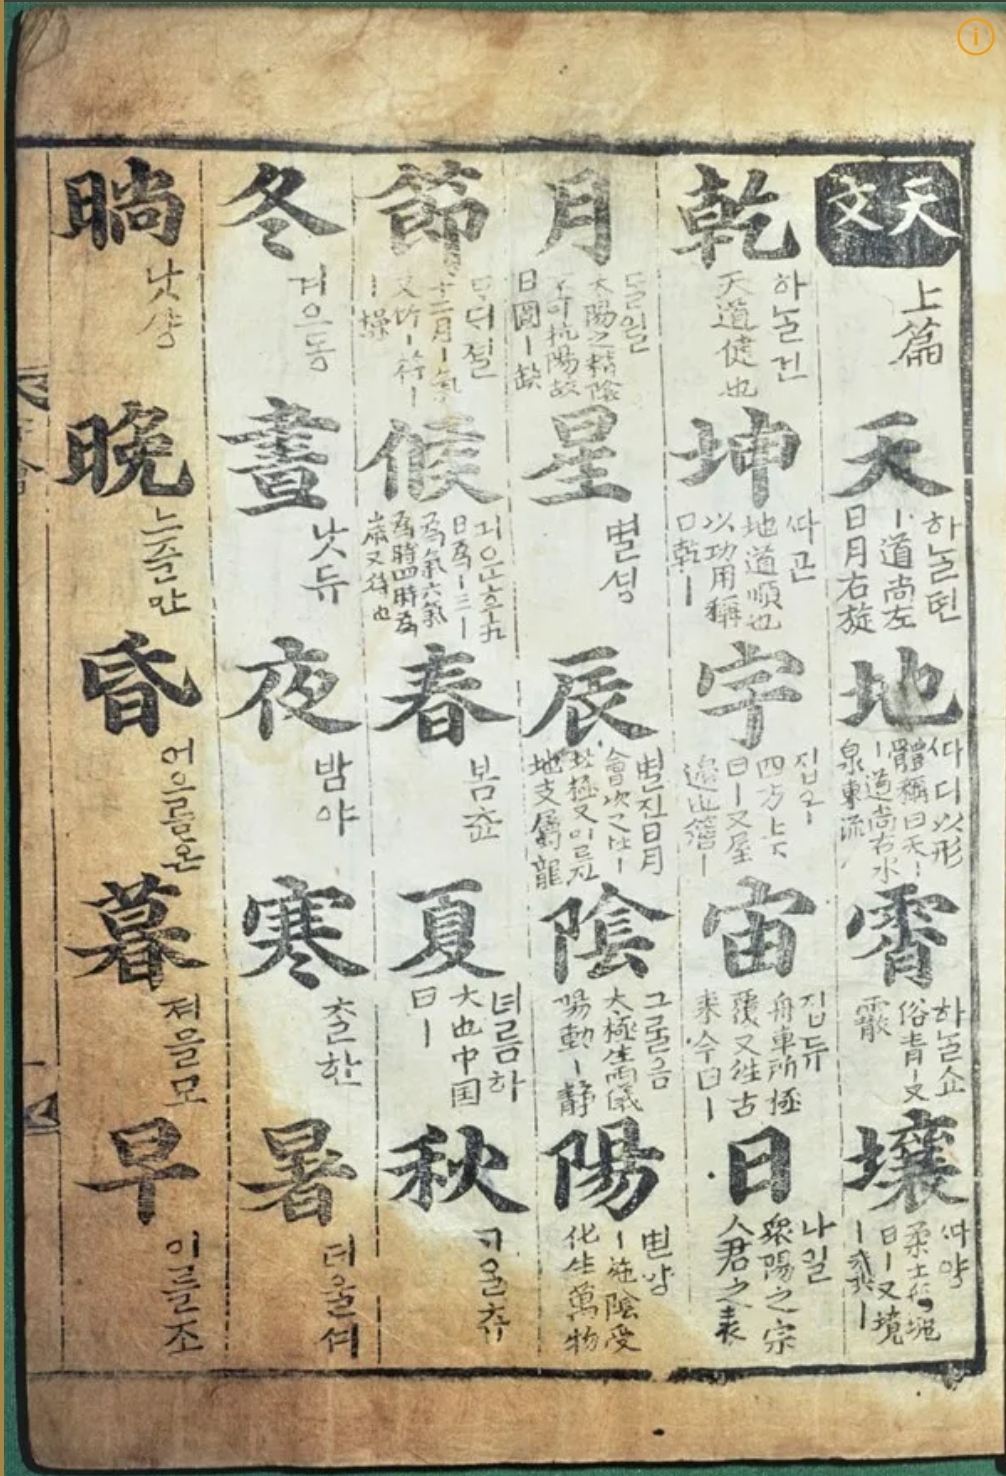 天文
上篇
天
하ᄂᆞᆯ텬
丨道尚左
日月右旋
地
ᄯᅡ디以形
體稱曰天丨
丨道尚右水
泉東流
霄
하ᄂᆞᆯ쇼
俗青丨又
霰
壤
ᄯᅡ양
柔土
曰丨又境
乾
하ᄂᆞᆯ건
天道健也
坤
ᄯᅡ곤
地道順也
以功用稱
曰乾丨
宇
집우
四方上下
曰丨又屋
邊也簷丨
宙
집듀
舟車所極
覆又往古
來今曰丨
日
나일
衆陽之宗
人君之表
月
ᄃᆞᆯ월
太陽之精陰
不可抗陽故
日圓丨缺
星
별셩
辰
별진日月
會次之所丨
北極又
地支屬龍
陰
그ᄂᆞᆯ음
太極生兩儀
陽動丨靜
陽
볃양
丨施陰受
化生萬物
節
ᄆᆞᄃᆡ졀
十二月丨氣
又竹丨符丨
丨操
候
日爲丨三丨
爲氣六氣
爲時四時爲
歲又待也
春
봄츈
夏
녀름하
大也中国
曰丨
秋
ᄀᆞ울츄
冬
겨으동
晝
낫듀
夜
밤야
寒
ᄎᆞᆯ한
暑
더울셔
晌
낫샹
晩
느즐만
昏
어으름혼
暮
져믈모
早
이를조